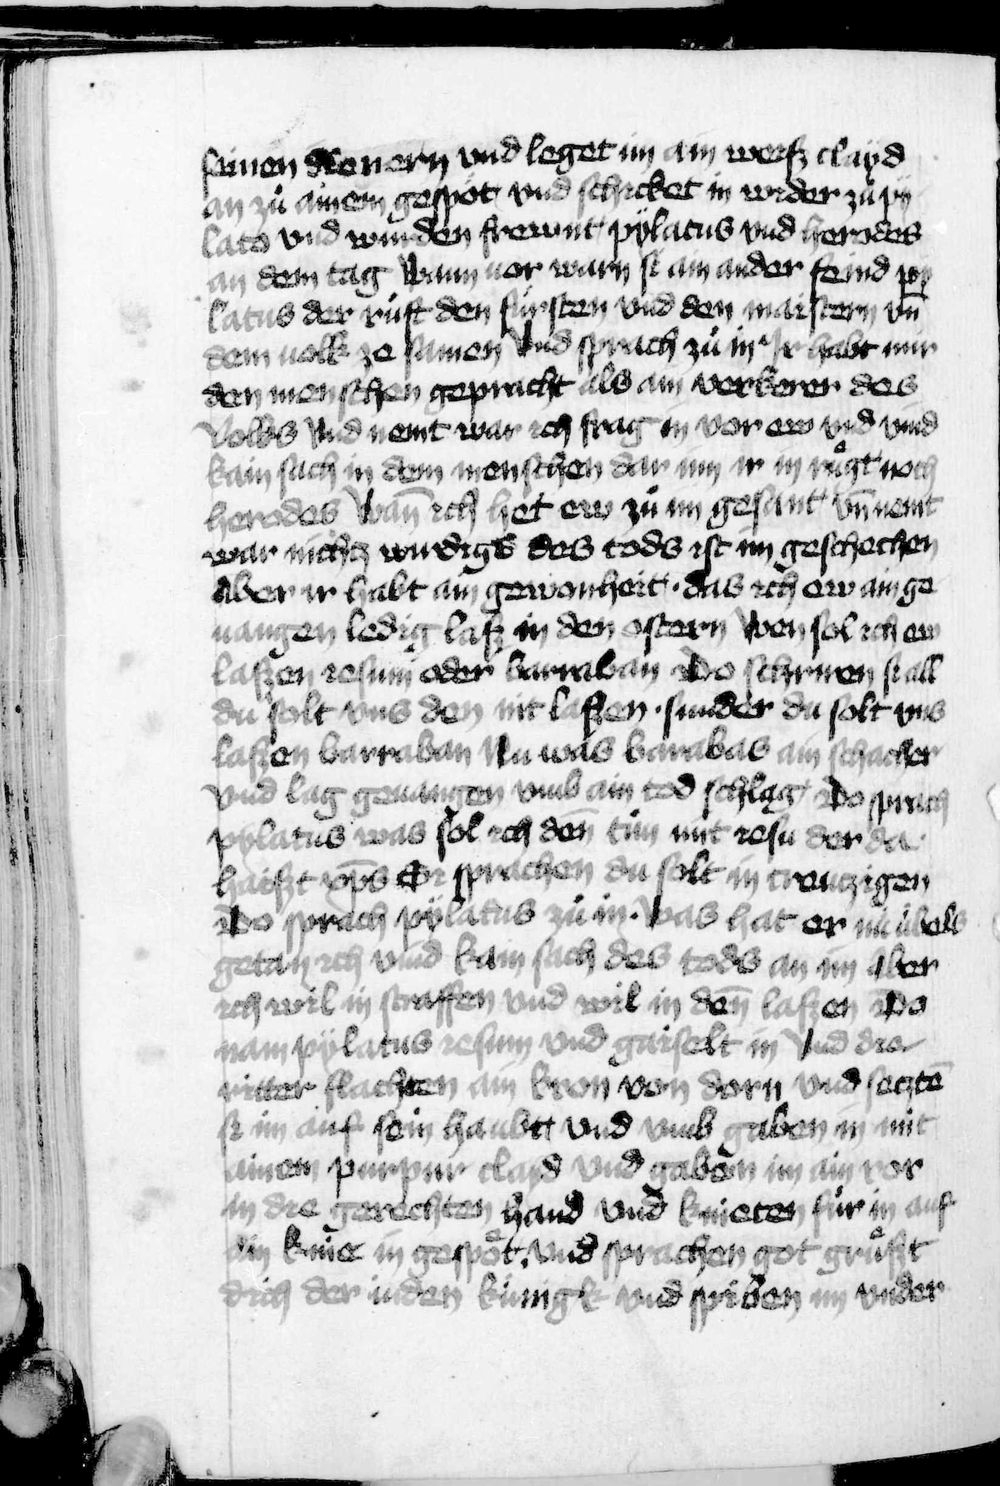 seinen dienern vnd leget im ain weisz clayd
an zuͦ ainem gespöt vnd schicket in wider zuͦ py
lato vnd wurden frewnt pÿlatus vnd herodes
an dem tag Wann uor warn si ain ander feind py
latus der ruͦft den fürsten vnd den maistern vn̄
dem uolk ze samen Vnd sprach zuͦ in Ir habt mir
den menschen gepracht als ain verkerer des
Volks Vnd nemt war ich frag in vor ew vnd vind
kain sach in dem menschen dar inn ir in ruͦgt noch
herodes Wan̄ ich het ew zuͦ im gesant vn̄ nemt
war nichtz wirdigs des tods ist im geschechen
Aber ir habt ain gewonheit · das ich ew ain ge
uangen ledig lasz in den ostern Wen sol ich ew
laszen iesum oder barraban Do schriren si all
du solt vns den nit laszen · sunder du solt vns
laszen barraban Nu was barabas ain schacher
vnd lag geuangen vmb ain tod schlag Do sprach
pylatus was sol ich den̄ tün mit iesu der da
haiszt xp̄s Si sprachen du solt in creutzigen
Do sprach pÿlatus zuͦ in · Was hat er nu übels
getan ich vind kain sach des tods an im Aber
ich wil in straffen vnd wil in den̄ laszen Do
nam pÿlatus iesum vnd gaiselt in Vnd die
ritter flachten ain kron von dorn vnd setztē
si im auf sein haubtt vnd vmb gaben in mit
ainem purpur clayd vnd gaben im ain ror
in die gerechten hand vnd knieten für in auf
ain knie in gespöt · vnd sprachen got gruͦszt
dich der iuden künigk vnd spiben im vnder